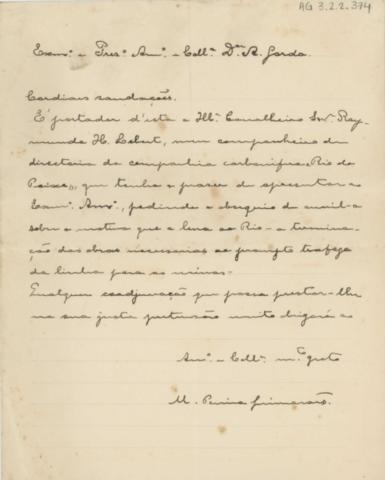 AG 3.2.2.374
Exmo. e Preso. Amo. e Collo. Dr. A. Gordo.
Cordiaes saudações.
É portador d'esta o Illo. Cavalheiro Snr. Ray-
mundo H. Lebert, meu companheiro de
directoria da companhia carbonifera Rio do
Peixe, que tenho o prazer de apresentar ao
Exmo. Amo., pedindo o obsequio de auxilial-o
sobre o motivo que o leva ao Rio - a termina-
ção das obras necessarias ao prompto trafego
da linha para as minas.
Qualquer coadjuvação que possa prestar-lhe
na sua justa pretensão muito obrigará ao
Amo. e Collo. mto. grto
M. Pereira Guimarães.